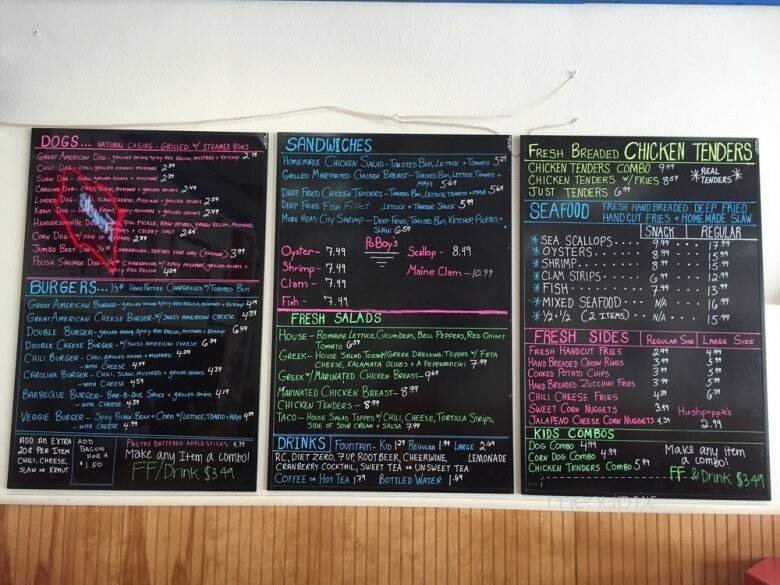 DOGS... NATURAL CASING - GRILLED W/ STEAMED BUNS
GREAT AMERICAN DOG - GRILLED ONIONS, SPICY RED RELISH, MUSTARD + KETCHUP 2.79
CHILI DOG - CHILI, GRILLED ONIONS + MUSTARD
SLAW DOG
CAROLINA
LOADED
KRAUT
HENDERSONVILLE DOG DILL PICKLE, RAW ONIONS, MUSTARD
+ CELERY SALT
CORN DOG
JUMBO BEEF
POLISH SAUSAGE DOG CHARGRILLED W/ SPICY MUSTARD, GRILLED ONIONS
SPICY RED RELISH 4.29
BURGERS... 1/3# HAND PATTIED CHARGRILLED W/ TOASTED BUN
GREAT AMERICAN BURGER - GRILLED ONIONS SPICY RED RELISH, MUSTARD + KETCHUP 4.29
GREAT AMERICAN CHEESE BURGER - W/ SWISS AMERICAN CHEESE 4.59
DOUBLE BURGER - GRILLED ONIONS SPICY RED RELISH, MUSTARD + KETCHUP 6.49
DOUBLE CHEESE BURGER - W/ SWISS AMERICAN CHEESE 6.99
CHILI BURGER - CHILI, GRILLED ONIONS + MUSTARD 4.39
- WITH CHEESE 4.99
CAROLINA BURGER - CHILI, SLAW, MUSTARD + GRILLED ONIONS 4.39
- WITH CHEESE 4.59
BARBEQUE BURGER - BAR-B-QUE SAUCE + GRILLED ONIONS 4.19
- WITH CHEESE 4.99
VEGGIE BURGER - SPICY BLACK BEAN + CORN W/ LETTUCE, TOMATO + MAYO 4.99
- WITH CHEESE 4.99
ADD AN EXTRA
20¢ PER ITEM
CHILI, CHEESE,
SLAW OR KRAUT
ADD
BACON
FOR A
$1.50
PASTRY BATTERED APPLE STICKS 4.39
Make any Item a combo!
FF/Drink $3.49
SANDWICHES
HOMEMADE CHICKEN SALAD - TOASTED BUN, LETTUCE + TOMATO 5.29
GRILLED MARINATED CHICKEN BREAST - TOASTED BUN, LETTUCE, TOMATO +
MAYO 5.69
DEEP FRIED CHICKEN TENDERS - TOASTED BUN, LETTUCE, TOMATO + MAYO 5.69
DEEP FRIED FISH FILLET - LETTUCE + TARTAR SAUCE 5.99
MORE HEAD CITY SHRIMP - DEEP FRIED, TOASTED BUN, KETCHUP, PICKLES +
SLAW 6.59
Po Boy's
Oyster - 7.49 Scallop - 8.49
Shrimp - 7.49 Maine Clam - 10.99
Clam - 7.49
Fish - 7.49
FRESH SALADS
HOUSE - ROMAINE LETTUCE, CUCUMBERS, BELL PEPPERS, RED ONION +
TOMATO 6.59
GREEK - HOUSE SALAD TOSSED W/ GREEK DRESSING, TOPPED W/ FETA
CHEESE, KALAMATA OLIVES + A PEPPERONCINI 7.99
GREEK W/ MARINATED CHICKEN BREAST - 9.69
MARINATED CHICKEN BREAST - 8.99
CHICKEN TENDERS - 8.99
TACO - HOUSE SALAD TOPPED W/ CHILI, CHEESE, TORTILLA STRIPS,
SIDE OF SOUR CREAM + SALSA 7.99
DRINKS FOUNTAIN - KID 1.29 REGULAR 1.99 LARGE 2.69
RC, DIET ZERO, 7UP, ROOT BEER, CHEERWINE, LEMONADE
CRANBERRY COCKTAIL, SWEET TEA OR UNSWEET TEA
COFFEE OR HOT TEA 1.79 BOTTLED WATER 1.69
FRESH BREADED CHICKEN TENDERS
CHICKEN TENDERS COMBO 9.49
CHICKEN TENDERS W/FRIES 8.59
JUST TENDERS 6.99
*REAL TENDERS*
SEAFOOD FRESH HAND BREADED DEEP FRIED
HANDCUT FRIES + HOMEMADE SLAW
SNACK REGULAR
*SEA SCALLOPS 9.99 17.99
*OYSTERS 8.99 15.99
*SHRIMP 8.99 15.99
*CLAM STRIPS 6.99 12.99
*FISH 7.99 13.99
*MIXED SEAFOOD N/A 16.99
*1/2 + 1/2 (2 ITEMS) N/A 15.99
FRESH SIDES REGULAR SIZE LARGE SIZE
FRESH HANDCUT FRIES 2.99 4.99
HAND BREADED ONION RINGS 3.99 5.99
COOKED POTATO CHIPS 3.99 5.99
HAND BREADED ZUCCHINI FRIES 3.99 5.99
CHILI CHEESE FRIES 4.39 6.39
SWEET CORN NUGGETS 3.99 Hushpuppies
JALAPENO CHEESE CORN NUGGETS 4.39 2.99
KIDS COMBOS
DOG COMBO 4.99
CORN DOG COMBO 4.99
CHICKEN TENDERS COMBO 5.99
Make any item
a combo!
FF & Drink $3.49
menupix